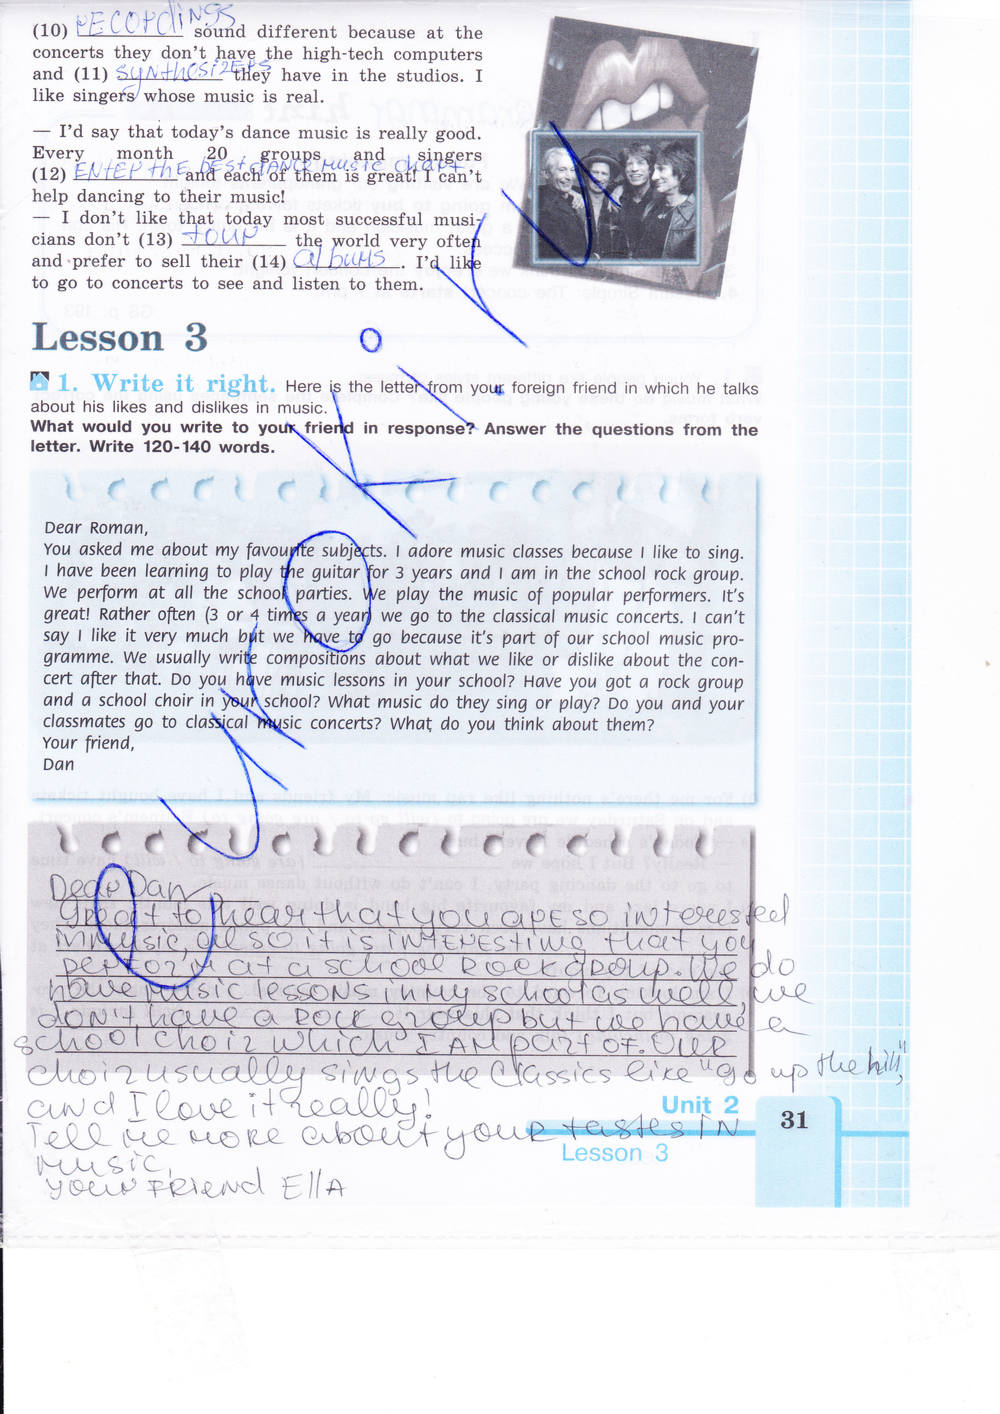 (10) recordings sound different because at the
concerts they don't have the high-tech computers
and (11) synthesizers they have in the studios. I
like singers whose music is real.
— I'd say that today's dance music is really good.
Every month 20 groups and singers
(12) enter the best dance music chart and each of them is great! I can't
help dancing to their music!
— I don't like that today most successful musi-
cians don't (13) tour the world very often
and prefer to sell their (14) albums. I'd like
to go to concerts to see and listen to them.
Lesson 3
1. Write it right. Here is the letter from your foreign friend in which he talks
about his likes and dislikes in music.
What would you write to your friend in response? Answer the questions from the
letter. Write 120-140 words.
Dear Roman,
You asked me about my favourite subjects. I adore music classes because I like to sing.
I have been learning to play the guitar for 3 years and I am in the school rock group.
We perform at all the school parties. We play the music of popular performers. It's
great! Rather often (3 or 4 times a year) we go to the classical music concerts. I can't
say I like it very much but we have to go because it's part of our school music pro-
gramme. We usually write compositions about what we like or dislike about the con-
cert after that. Do you have music lessons in your school? Have you got a rock group
and a school choir in your school? What music do they sing or play? Do you and your
classmates go to classical music concerts? What do you think about them?
Your friend,
Dan
Dear Dan
Great to hear that you are so interested
in music, also it is interesting that you
perform at a school rock group. We do
have music lessons in my school as well, we
don't have a rock group but we have a
school choir which I am part of. Our
choir usually sings the classics like "go up the hill",
and I love it really!
Tell me more about your tastes in
music,
your friend Ella
Unit 2
31
Lesson 3
uroki.ru